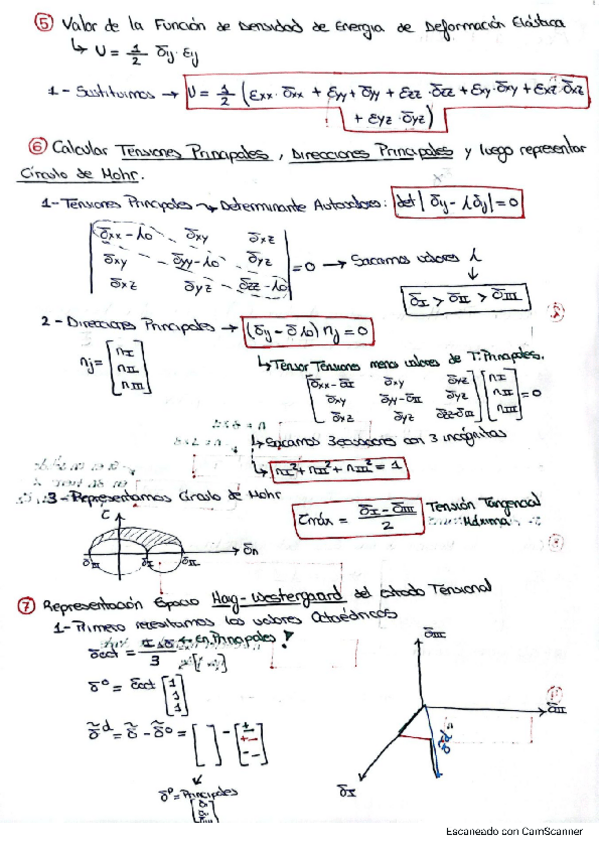 ⑤ Valor de la Función de Densidad de Energia de Deformación Elástica
↳ U = 1/2 σij · εij
1 - Sustituimos → U = 1/2 (εxx · σxx + εyy + σyy + εzz · σzz + εxy · σxy + εxz · σxz
+ εyz · σyz)
⑥ Calcular Tensiones Principales, Direcciones Principales y luego representar
Círculo de Mohr.
1 - Tensiones Principales → Determinante Autovalores: det | σij - λδij | = 0
| σxx - λo σxy σxz |
| σxy σyy - λo σyz | = 0 → Sacamos valores λ
| σxz σyz σzz - λo |
↓
σI > σII > σIII
2 - Direcciones Principales → (σij - σ λo) nj = 0
nj = [nI nII nIII]
↳ Tensor Tensiones menos valores de T. Principales.
[σxx - σI σxy σxz] [nI]
[σxy σyy - σII σyz] [nII] = 0
[σxz σyz σzz - σIII] [nIII]
↳ Sacamos 3 ecuaciones con 3 incógnitas
↳ nI² + nII² + nIII² = 1
3 - Representamos Círculo de Mohr
τmáx = (σI - σIII)/2 Tensión Tangencial
Máxima
τ
σn
σIII σII
⑦ Representación Espacio Hag-Westergaard del estado Tensional
1 - Primero necesitamos los valores Octaédricos
σoct = /3 ← En Principales!
σº = σoct [1 1 1]
σᵈ = σ - σº = [ ] - [ ]
↓
σᵖ = Principales
σIII
σII
σI
σᵈ
Escaneado con CamScanner